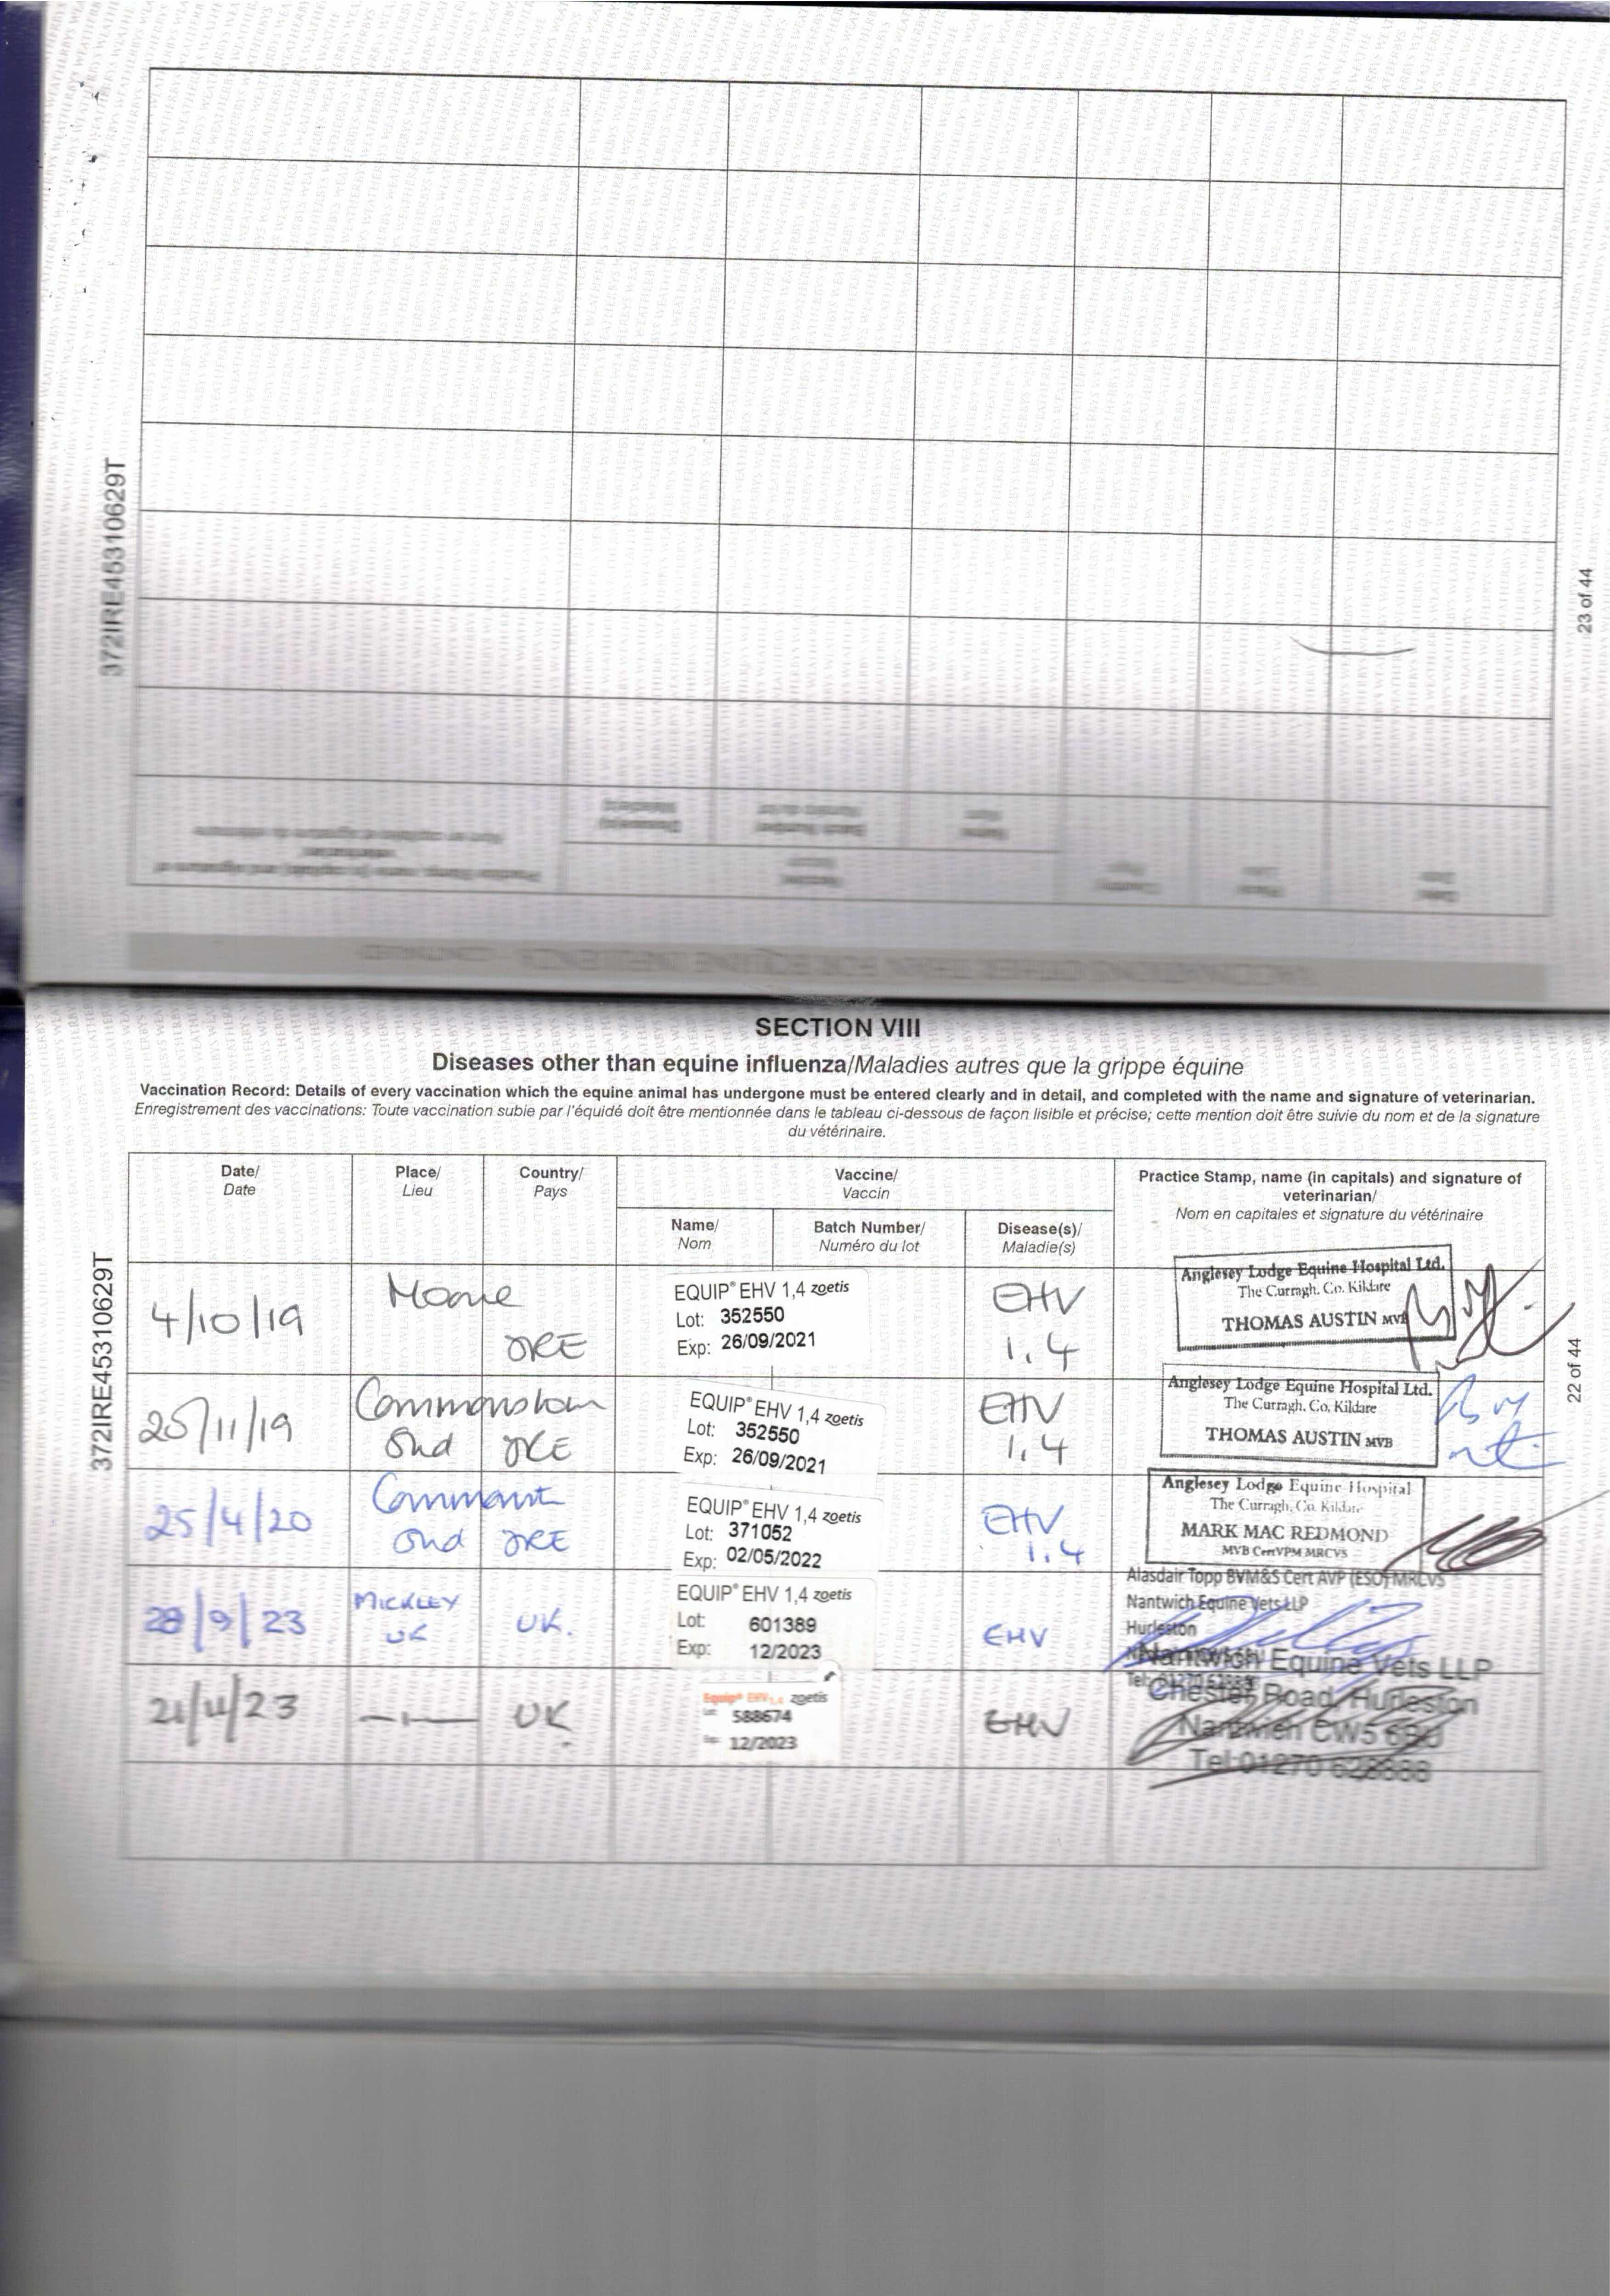 372IRE45310629T
23 of 44
SECTION VIII
Diseases other than equine influenza/Maladies autres que la grippe équine
Vaccination Record: Details of every vaccination which the equine animal has undergone must be entered clearly and in detail, and completed with the name and signature of veterinarian.
Enregistrement des vaccinations: Toute vaccination subie par l'équidé doit être mentionnée dans le tableau ci-dessous de façon lisible et précise; cette mention doit être suivie du nom et de la signature
du vétérinaire.
Date/
Date
Place/
Lieu
Country/
Pays
Vaccine/
Vaccin
Name/
Nom
Batch Number/
Numéro du lot
Disease(s)/
Maladie(s)
Practice Stamp, name (in capitals) and signature of
veterinarian/
Nom en capitales et signature du vétérinaire
372IRE45310629T
22 of 44
4/10/19
IRE
EQUIP® EHV 1,4 zoetis
Lot: 352550
Exp: 26/09/2021
EHV
1.4
Anglesey Lodge Equine Hospital Ltd.
The Curragh, Co. Kildare
THOMAS AUSTIN MVB
25/11/19
Stud IRE
EQUIP® EHV 1,4 zoetis
Lot: 352550
Exp: 26/09/2021
EHV
1.4
Anglesey Lodge Equine Hospital Ltd.
The Curragh, Co. Kildare
THOMAS AUSTIN MVB
25/4/20
Stud IRE
EQUIP® EHV 1,4 zoetis
Lot: 371052
Exp: 02/05/2022
EHV
1.4
Anglesey Lodge Equine Hospital
The Curragh, Co. Kildare
MARK MAC REDMOND
MVB CertVPM MRCVS
28/9/23
MICKLEY
UK
UK.
EQUIP® EHV 1,4 zoetis
Lot: 601389
Exp: 12/2023
EHV
Alasdair Topp BVM&S Cert AVP (ESO) MRCVS
Nantwich Equine Vets LLP
Hurleston
21/11/23
UK
Equip® EHV 1,4 zoetis
588674
12/2023
EHV
Nantwich Equine Vets LLP
Chester Road, Hurleston
Nantwich CW5 6BU
Tel:01270 628888